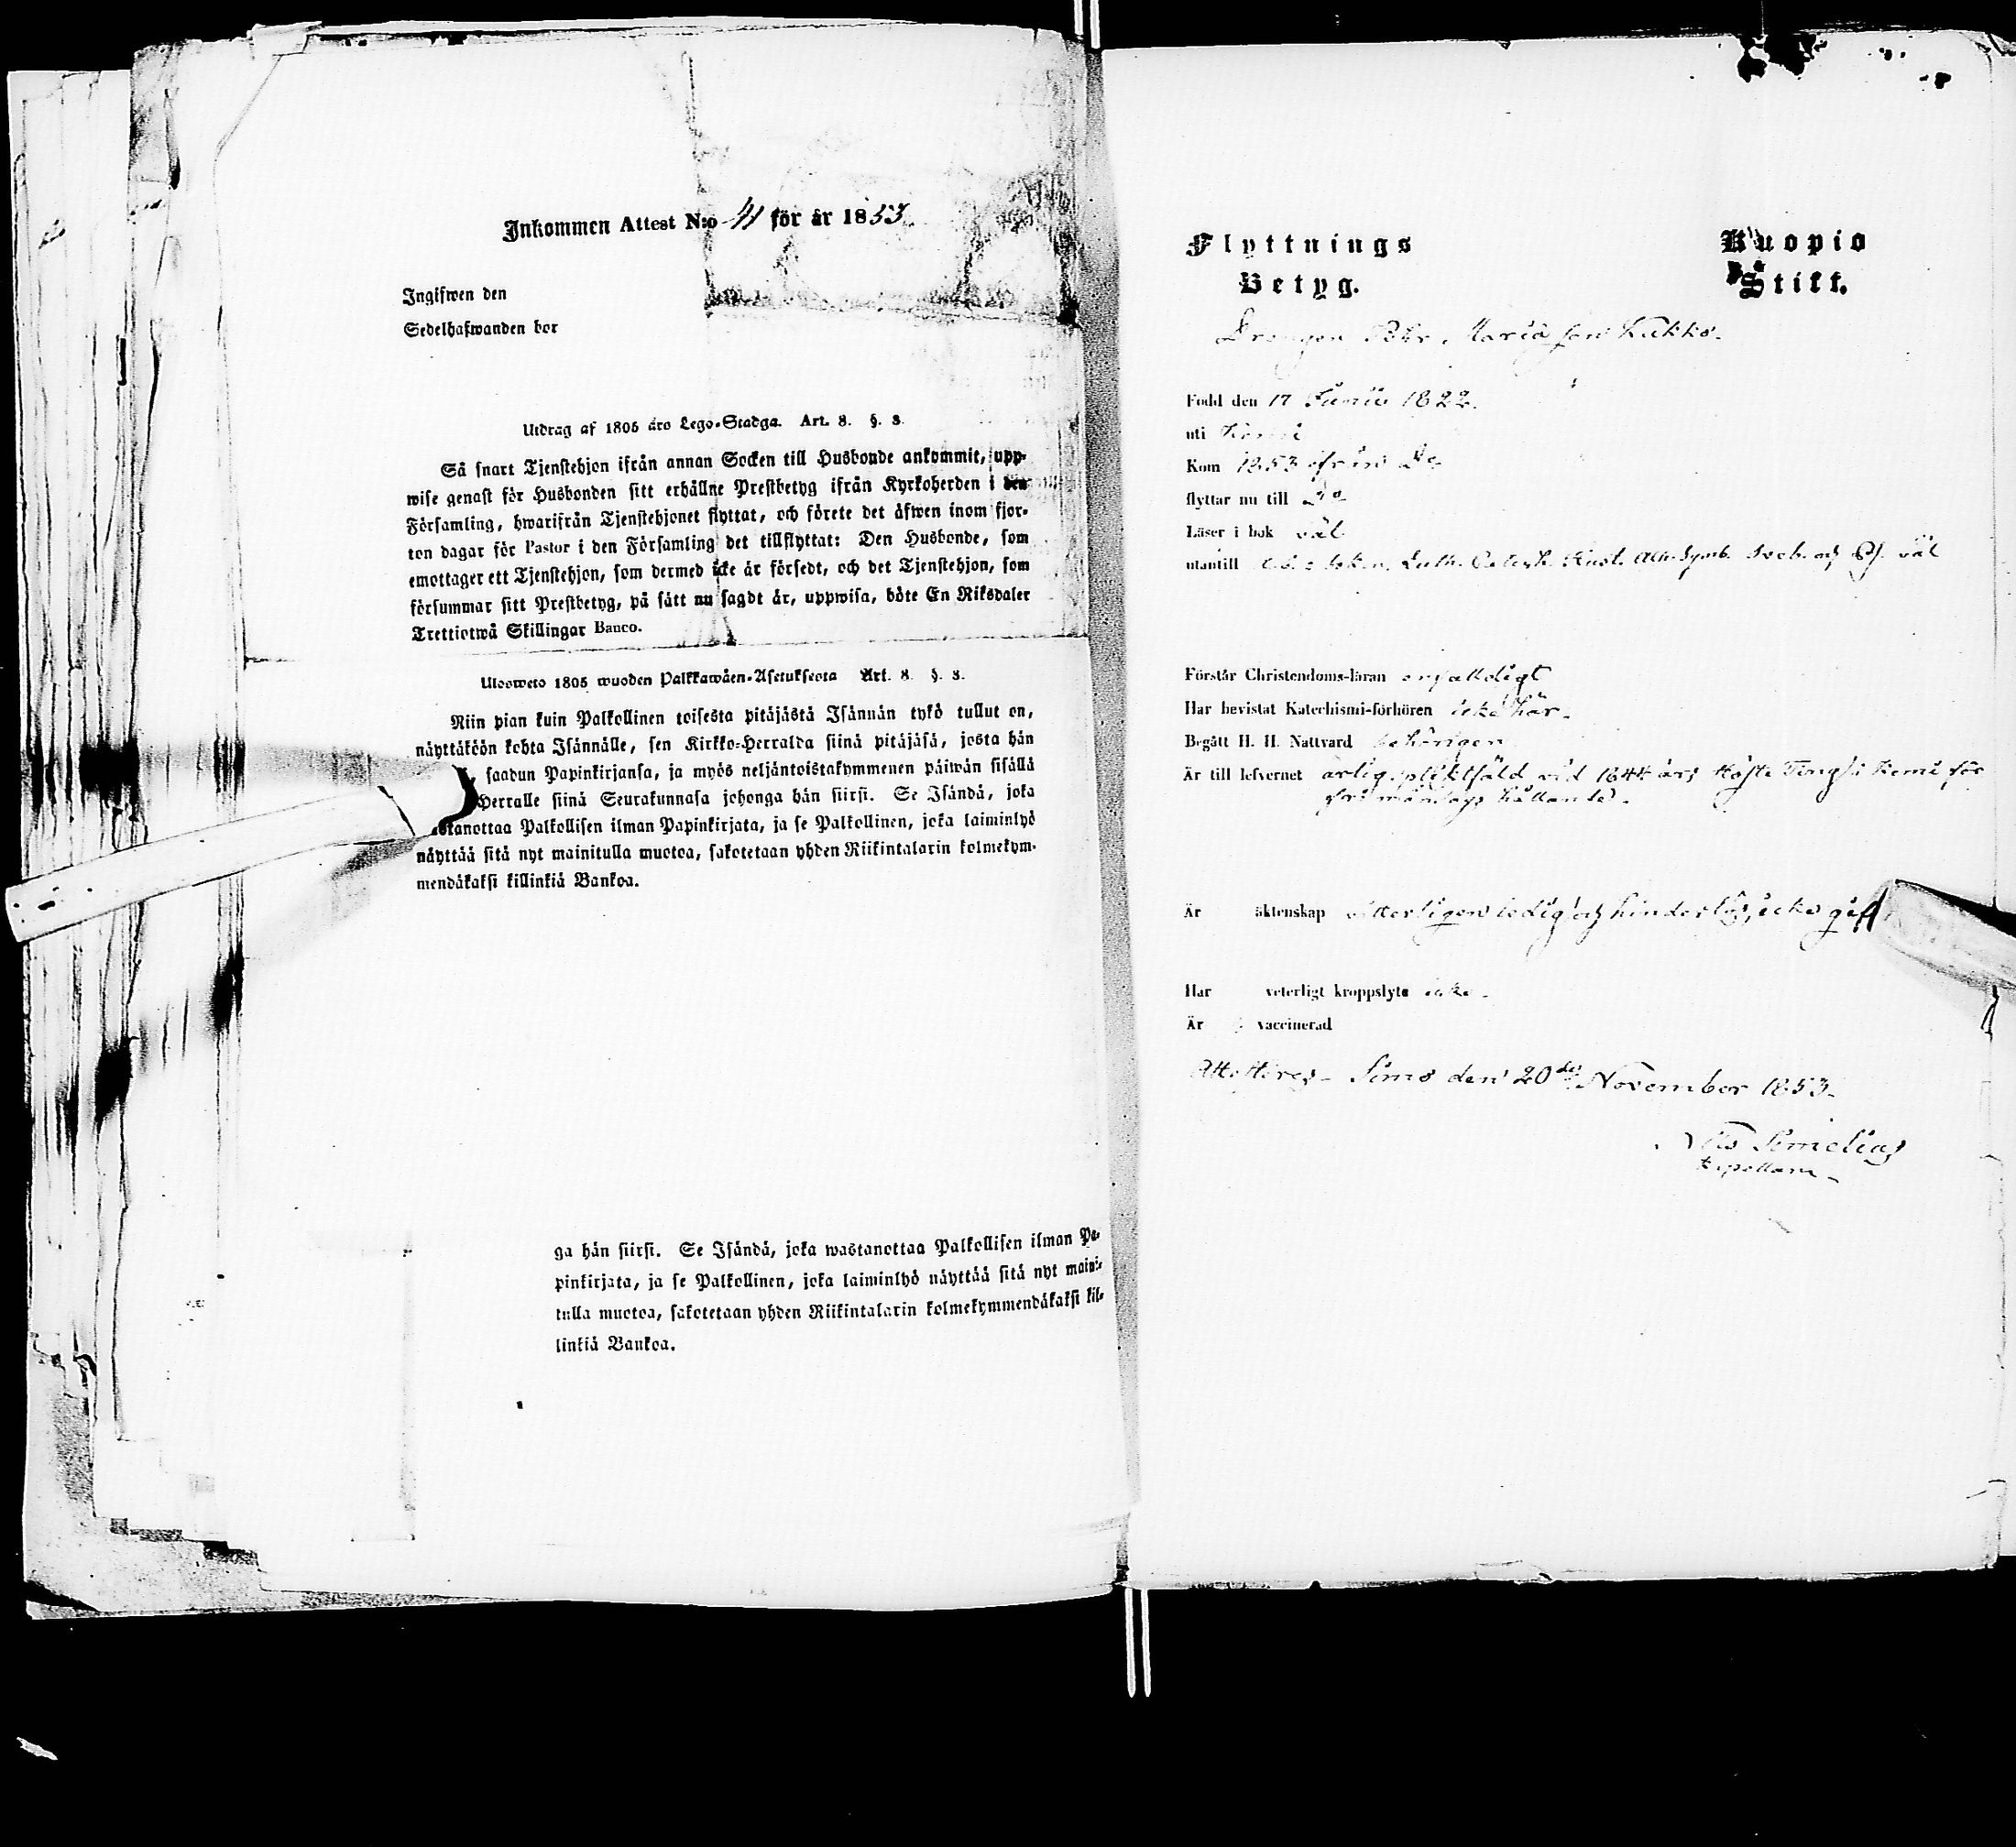 Inkommen Attest N:o 41 för år 1853.
Ingifwen den
Sedelhafwanden bor
Utdrag af 1805 års Lego-Stadga. Art. 8. §. 3.
Så snart Tjenstehjon ifrån annan Socken till Husbonde ankommit, upp-
wise genast för Husbonden sitt erhållne Prestbetyg ifrån Kyrkoherden i den
Församling, hwarifrån Tjenstehjonet flyttat, och förete det äfwen inom fjor-
ton dagar för Pastor i den Församling det tillflyttat: Den Husbonde, som
emottager ett Tjenstehjon, som dermed icke är försedt, och det Tjenstehjon, som
försummar sitt Prestbetyg, på sätt nu sagdt är, uppwisa, böte En Riksdaler
Trettiotwå Skillingar Banco.
Ulosweto 1805 wuoden Palkkawäen-Asetuksesta Art. 8. §. 3.
Niin pian kuin Palkollinen toisesta pitäjästä Isännän tykö tullut on,
näyttäköön kohta Isännälle, sen Kirkko-Herralda siinä pitäjäsä, josta hän
saadun Papinkirjansa, ja myös neljäntoistakymmenen päiwän sisällä
Herralle siinä Seurakunnasa johonga hän siirsi. Se Isändä, joka
wastanottaa Palkollisen ilman Papinkirjata, ja se Palkollinen, joka laiminlyö
näyttää sitä nyt mainitulla muotoa, sakotetaan yhden Riikintalarin kolmekym-
mendäkaksi killinkiä Bankoa.
ga hän siirsi. Se Isändä, joka wastanottaa Palkollisen ilman Pa-
pinkirjata, ja se Palkollinen, joka laiminlyö näyttää sitä nyt maini-
tulla muotoa, sakotetaan yhden Riikintalarin kolmekymmendäkaksi kil-
linkiä Bankoa.
Flyttnings Kuopio
Betyg. Stift.
Drengen Pehr Mariason Kukko.
Född den 17 Junii 1822.
uti Kemi
Kom 1853 ifrån Do
flyttar nu till Do
Läser i bok väl
utantill Luth. Catech. Hust. Ath. Symb. Sveb. och Ps. väl
Förstår Christendoms-läran enfaldigt
Har bevistat Katechismi-förhören icke här.
Begått H. H. Nattvard behörigen
Är till lefvernet ärlig, pliktfäld vid 1844 års Höste Ting i Kemi för
hållande.
Är äktenskap vitterligen ledig och hinderlös, icke gift
Har veterligt kroppslyte icke.
Är vaccinerad
Attesteras. Simo den 20de November 1853.
Simelius
Kapellan.